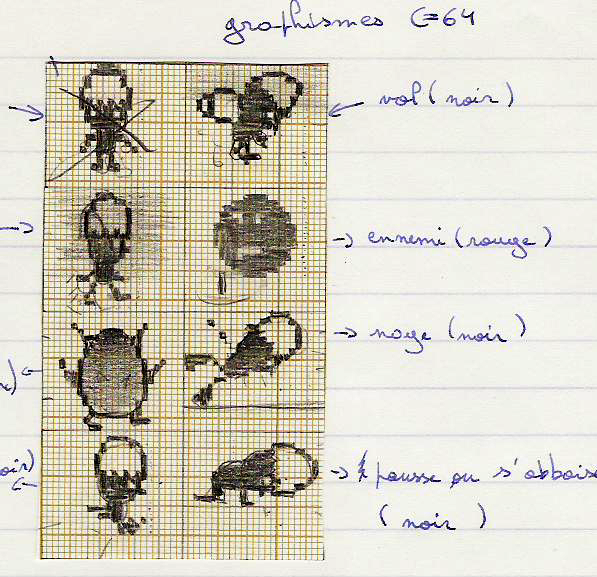 graphismes C=64
vol (noir)
ennemi (rouge)
nage (noir)
pousse ou s'abbaisse
(noir)